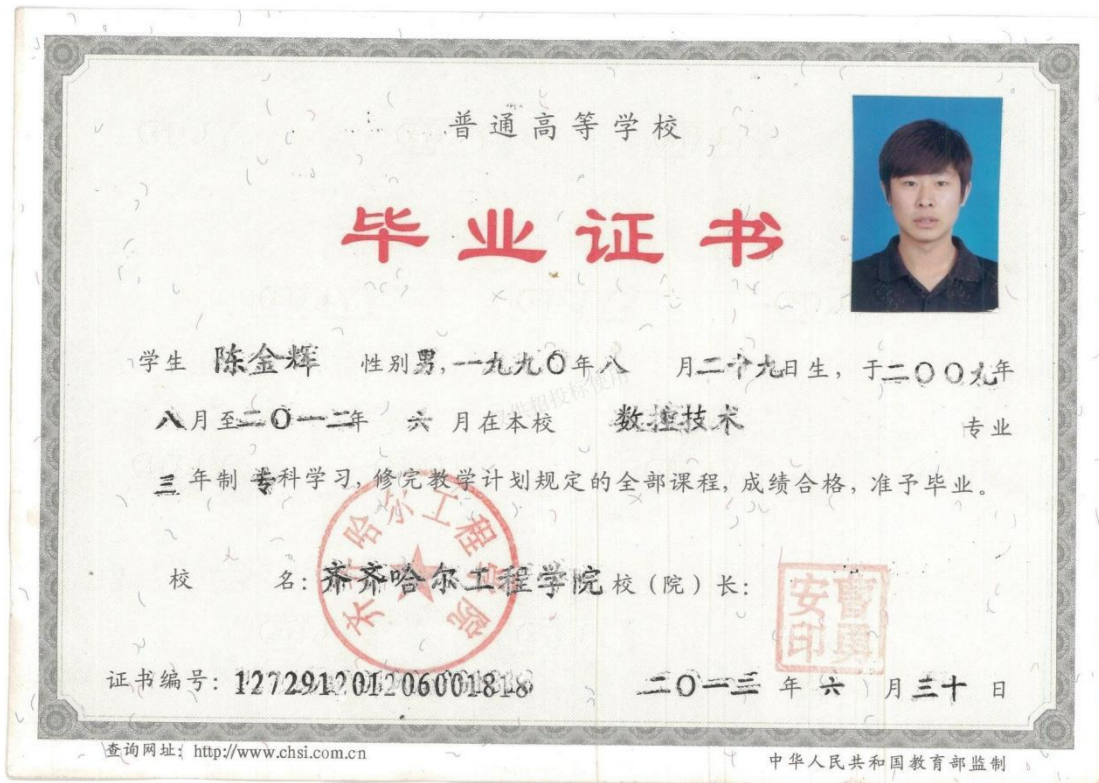 普通高等学校
毕业证书
学生 陈金辉 性别男,一九九〇年八 月二十九日生,于二〇〇九年
八月至二〇一二年 六 月在本校 数控技术 专业
三 年制 专科学习,修完教学计划规定的全部课程,成绩合格,准予毕业。
校 名:齐齐哈尔工程学院 校(院)长:
齐齐哈尔工程学院
曹勇安印
证书编号:127291201206001818 二〇一二 年 六 月三十 日
查询网址:http://www.chsi.com.cn 中华人民共和国教育部监制